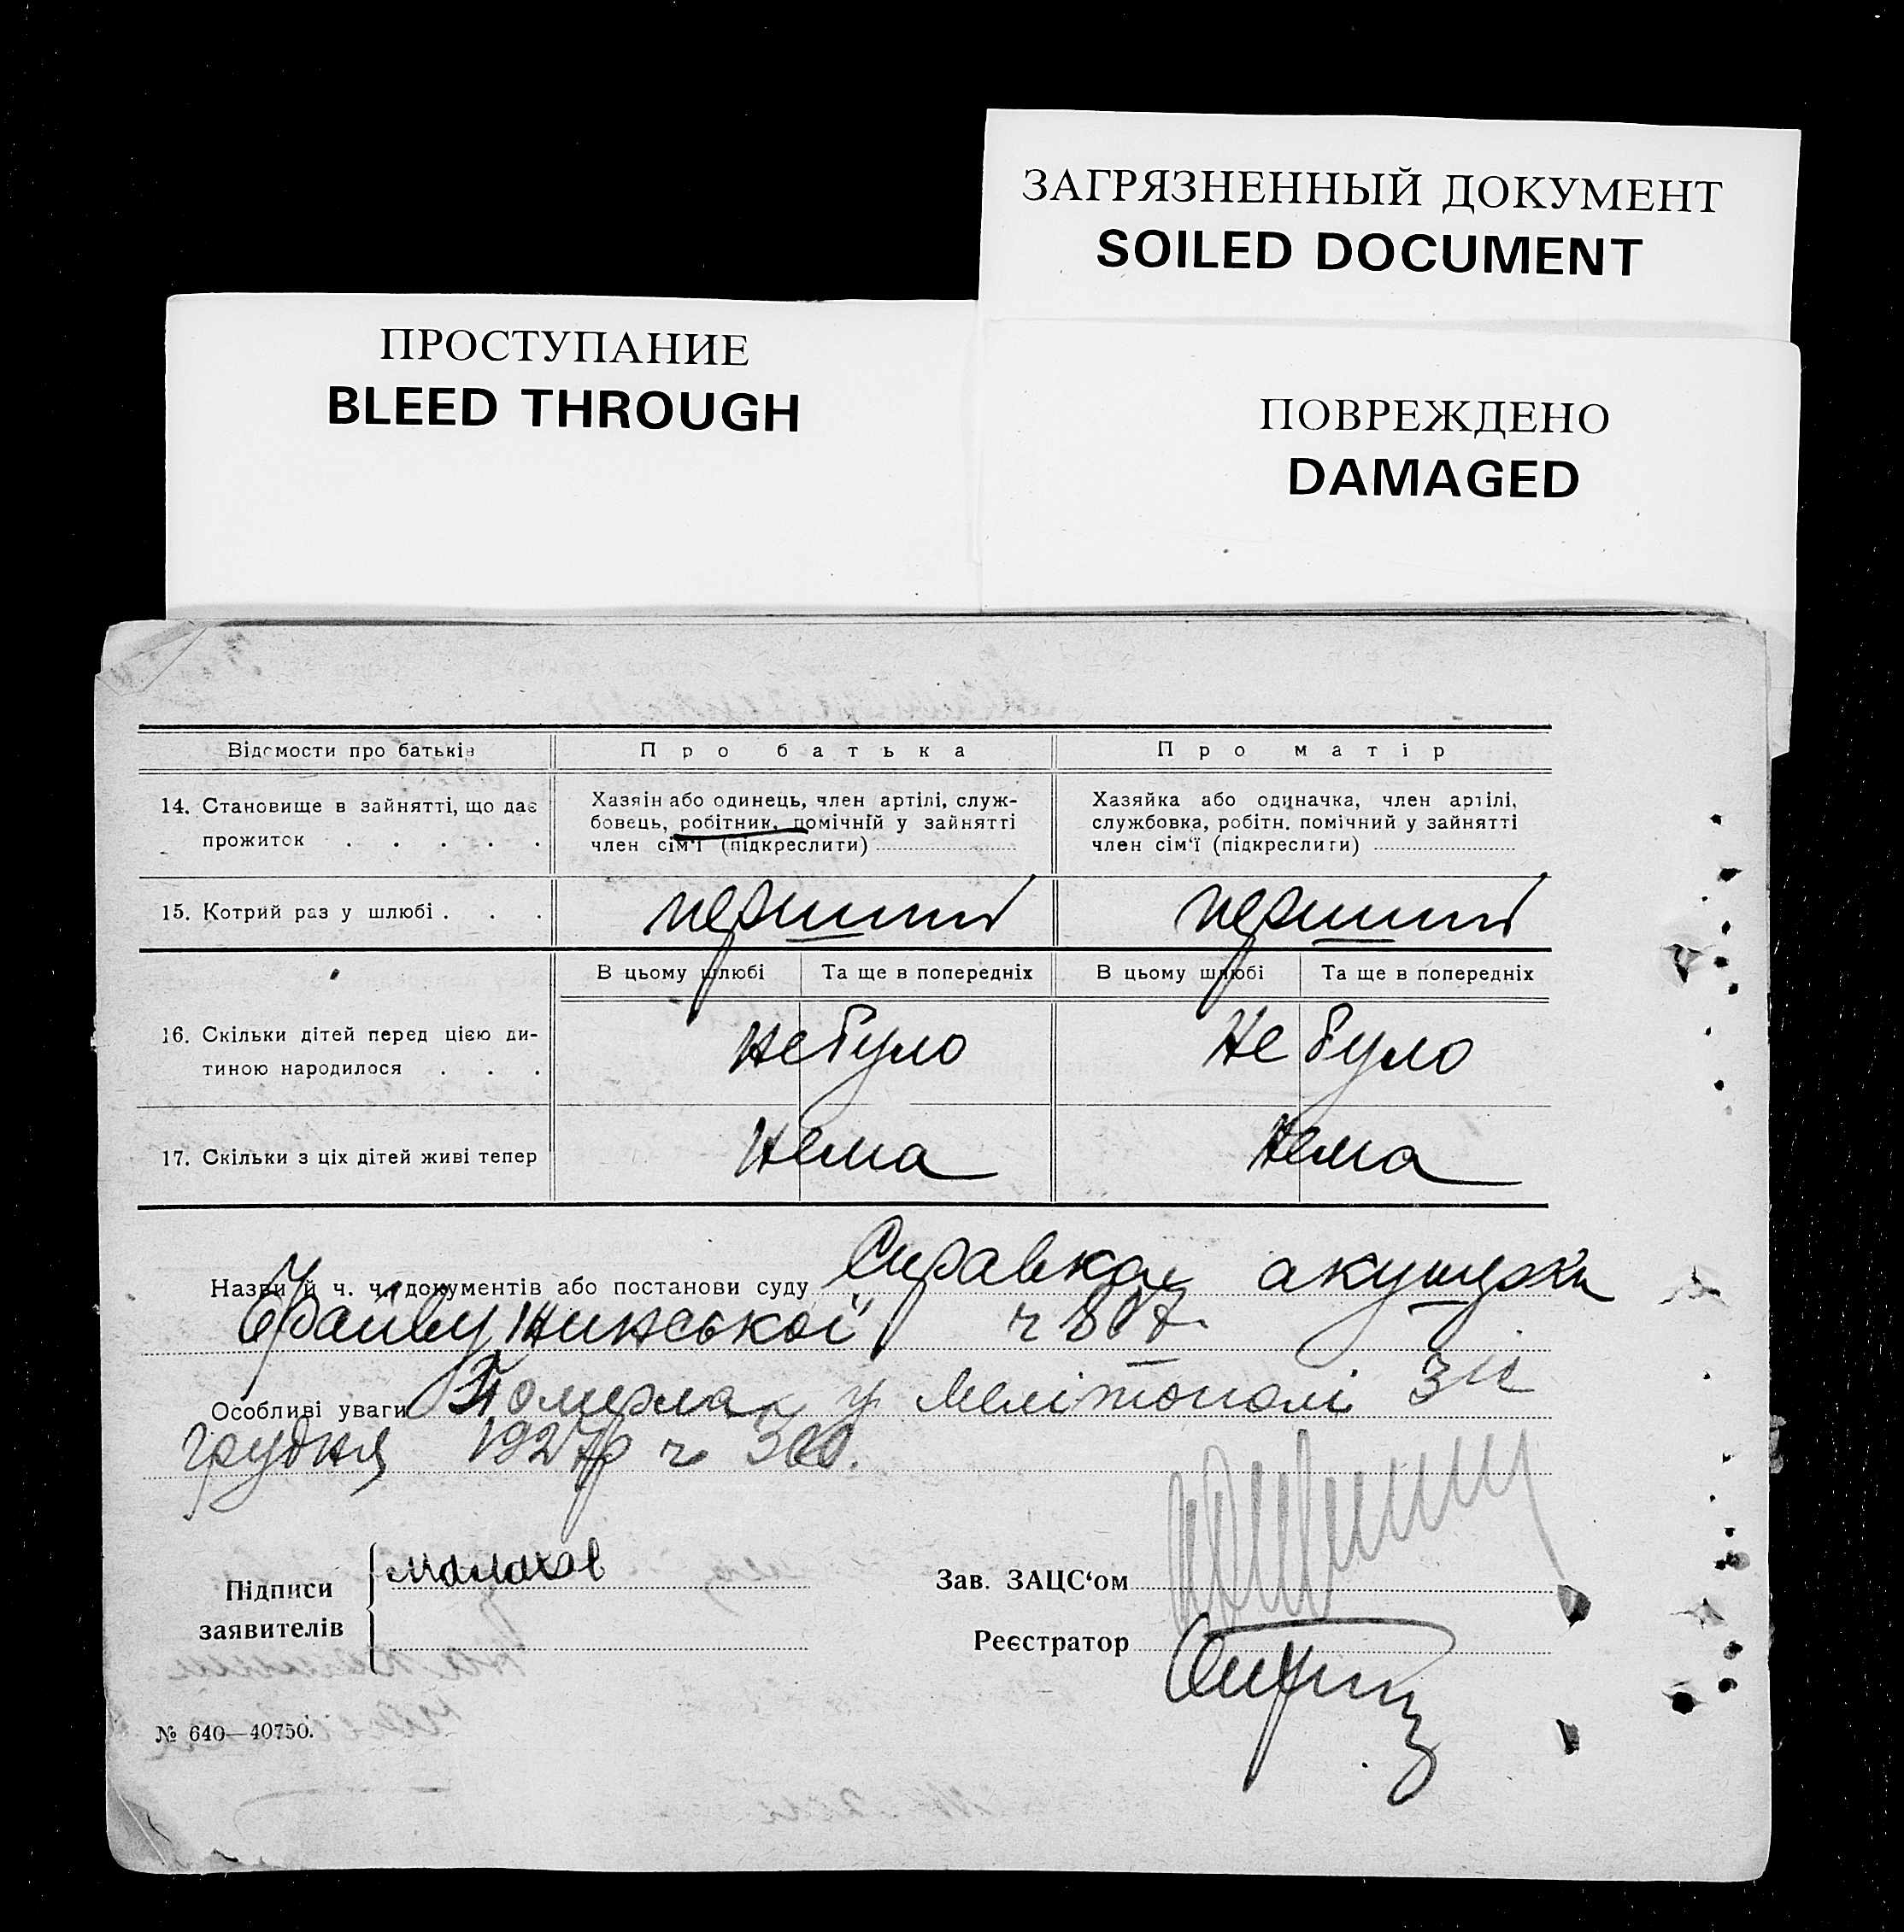 ЗАГРЯЗНЕННЫЙ ДОКУМЕНТ
SOILED DOCUMENT
ПРОСТУПАНИЕ
BLEED THROUGH
ПОВРЕЖДЕНО
DAMAGED
Відомости про батьків
Про батька
Про матір
14. Становище в зайнятті, що дає
прожиток . . . . .
Хазяїн або одинець, член артілі, служ-
бовець, робітник, помічній у зайнятті
член сім'ї (підкреслити)
Хазяйка або одиначка, член артілі,
службовка, робітн. помічний у зайнятті
член сім'ї (підкреслити)
15. Котрий раз у шлюбі . . .
перший
перший
В цьому шлюбі
Та ще в попередніх
В цьому шлюбі
Та ще в попередніх
16. Скільки дітей перед цією ди-
тиною народилося . . .
не було
не було
17. Скільки з ціх дітей живі тепер
нема
нема
Назви й ч. ч. документів або постанови суду Справка акушерки
ч
Особливі уваги Померла у Мелітополі
грудня 1927р ч
Підписи
заявителів
Малахов
Зав. ЗАЦС'ом
Реєстратор
№ 640—40750.